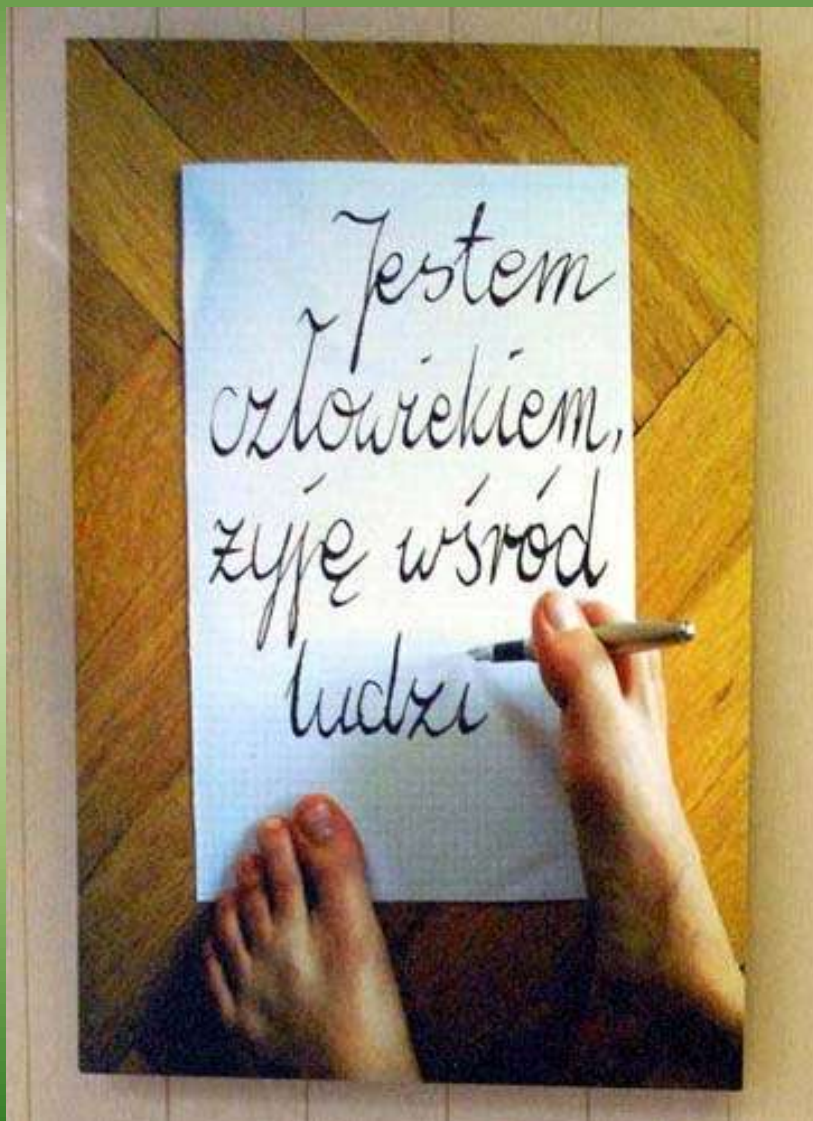 Jestem
człowiekiem,
żyję wśród
ludzi